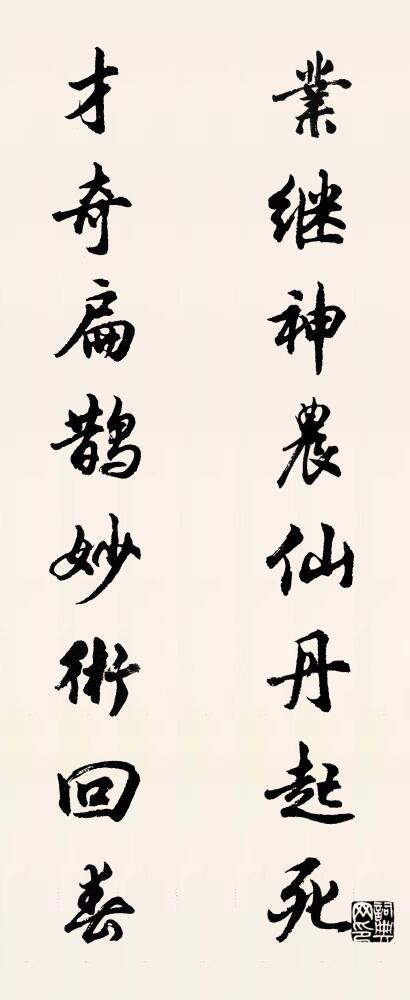 業继神農仙丹起死
才奇扁鵲妙術回春
詞典网印